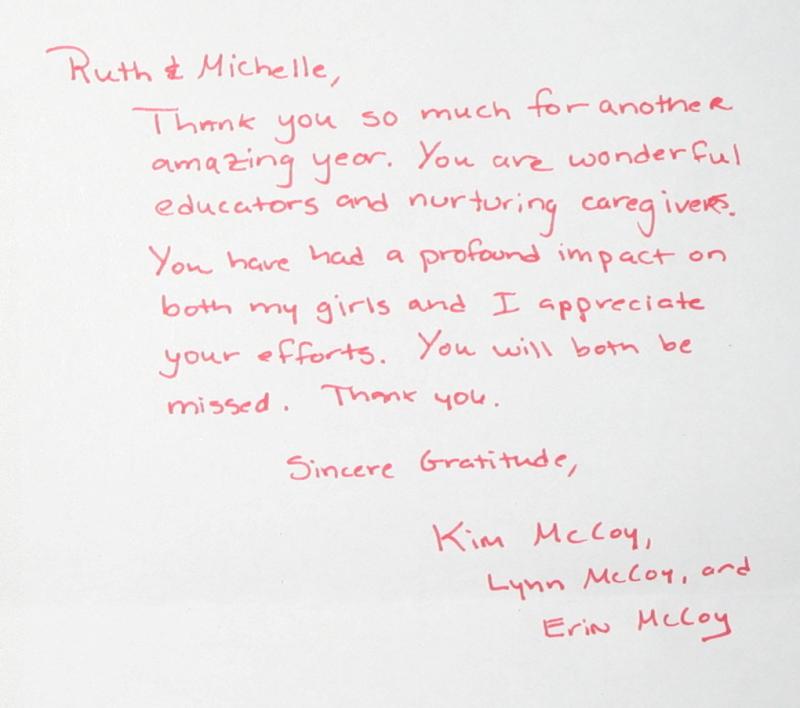 Ruth & Michelle,
Thank you so much for another
amazing year. You are wonderful
educators and nurturing caregivers.
You have had a profound impact on
both my girls and I appreciate
your efforts. You will both be
missed. Thank you.
Sincere Gratitude,
Kim McCoy,
Lynn McCoy, and
Erin McCoy